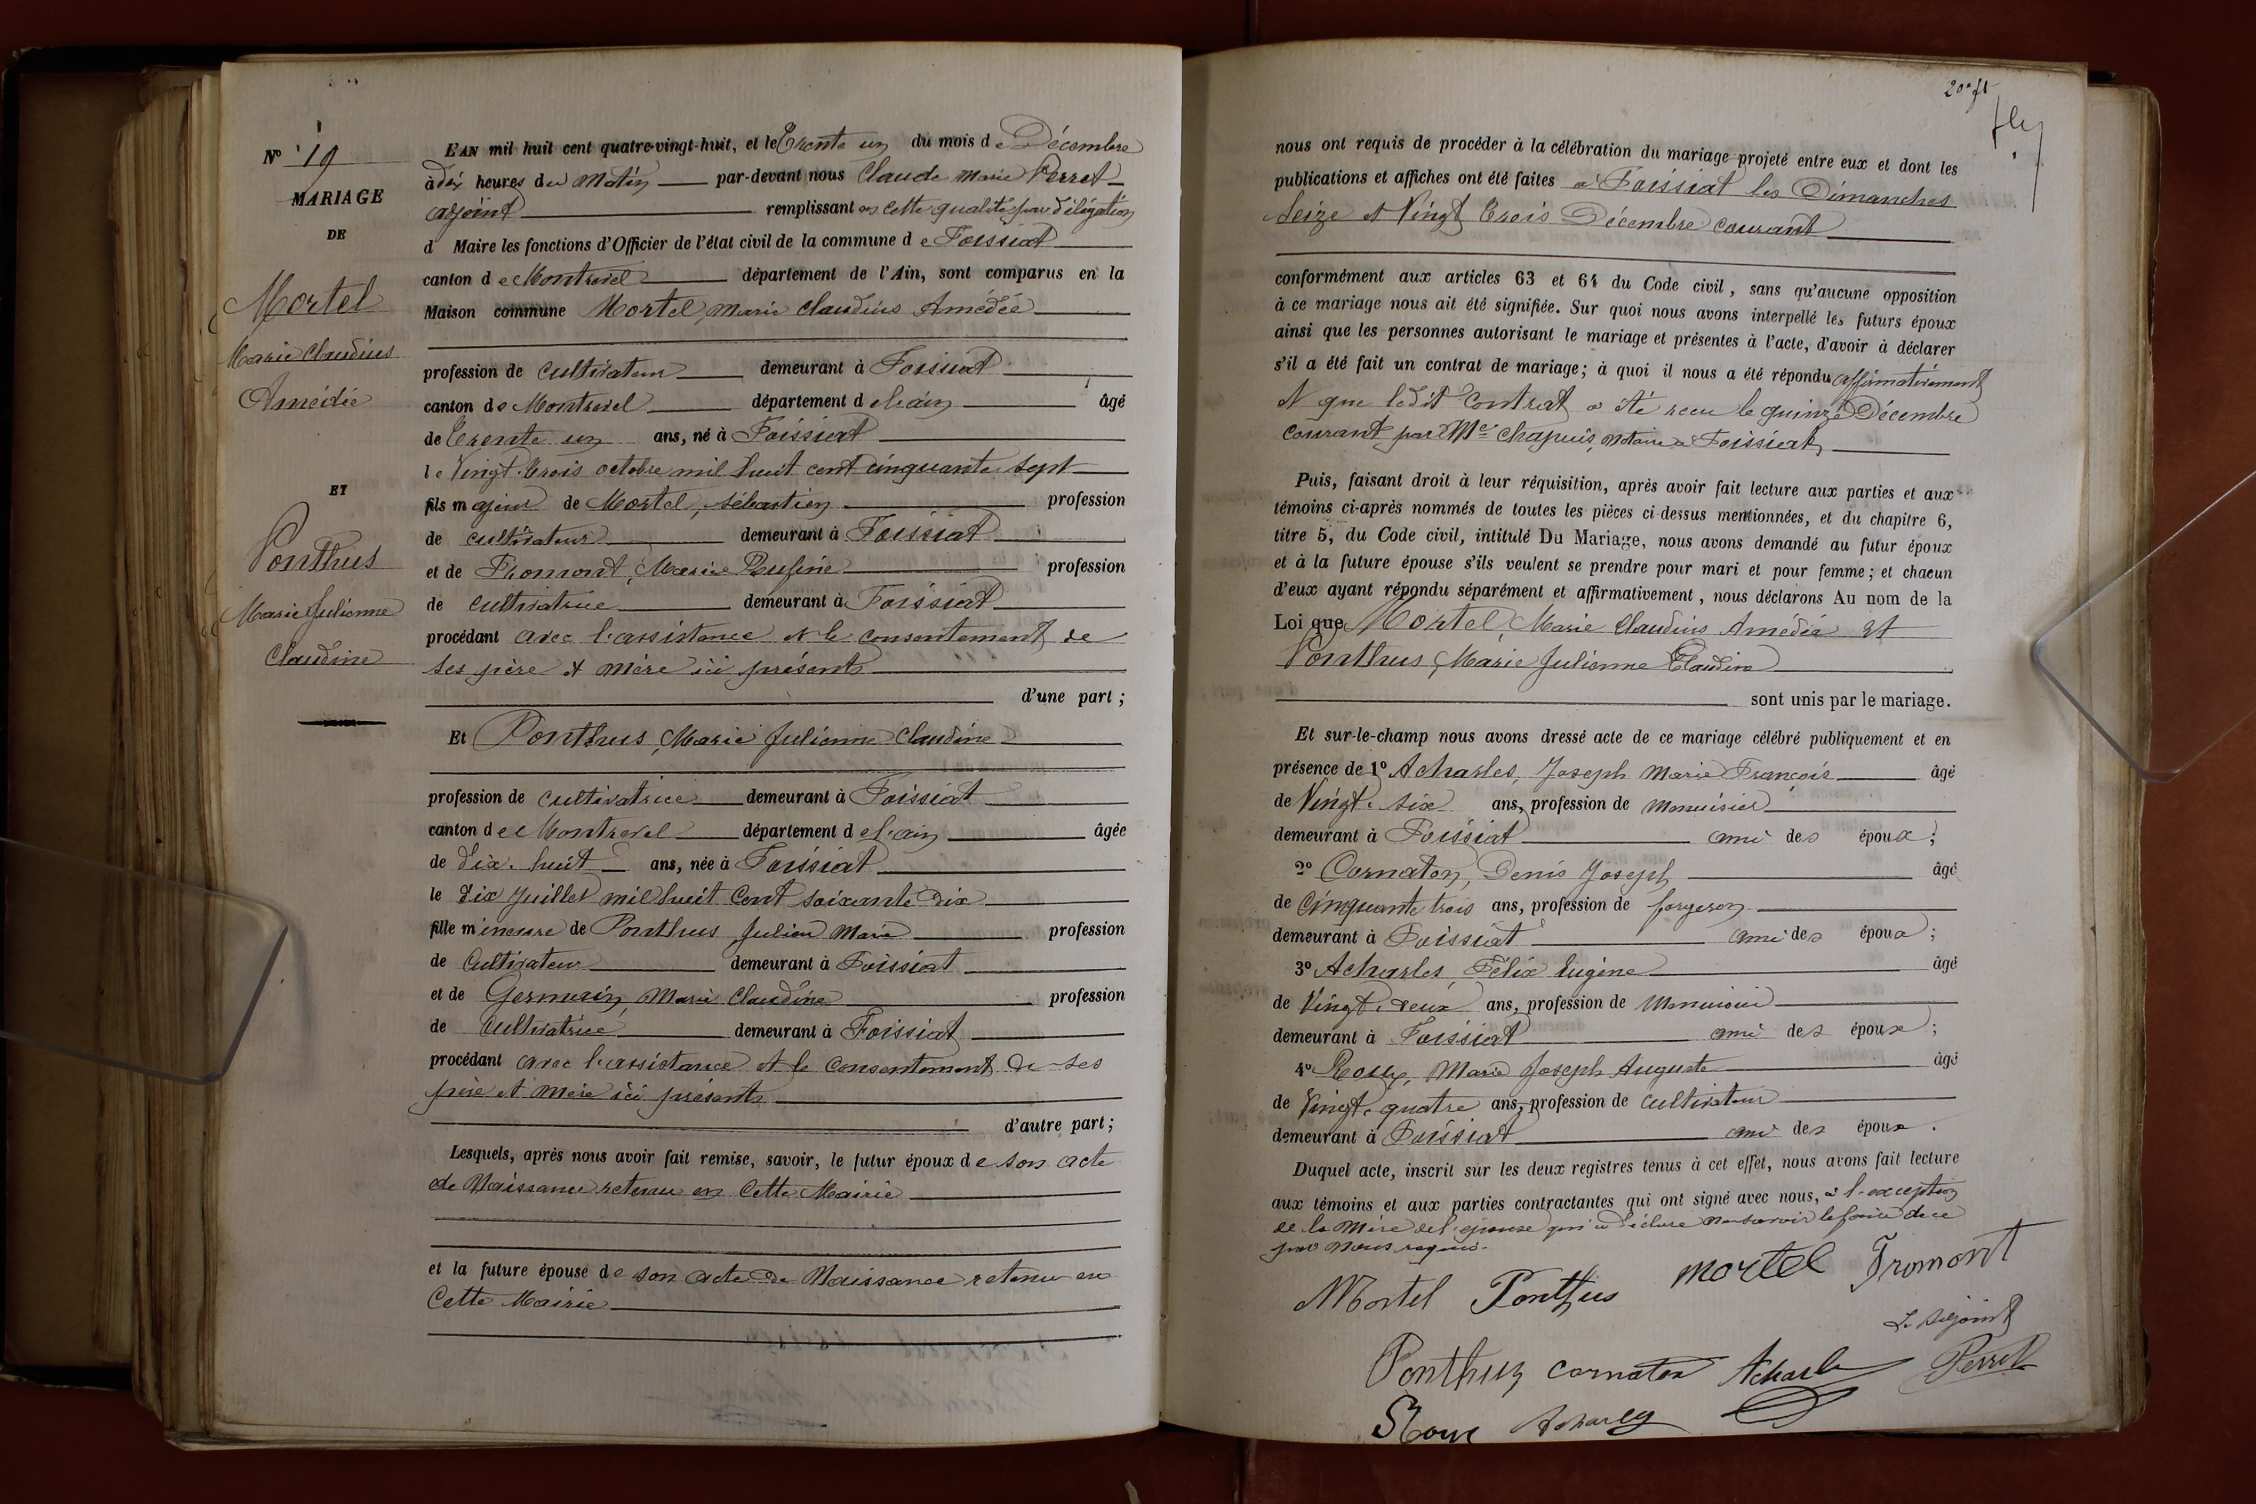 Nº 19
MARIAGE
DE
Mortel
Marie Claudius
Amédée
ET
Ponthus
Marie Julienne
Claudine
L'AN mil huit cent quatre-vingt-huit, et le Trente un du mois de Décembre
à dix heures du Matin par-devant nous Claude Marie Perret
adjoint remplissant en cette qualité par délégation
d Maire les fonctions d'Officier de l'état civil de la commune de Foissiat
canton de Montrevel département de l'Ain, sont comparus en la
Maison commune Mortel, Marie Claudius Amédée
profession de cultivateur demeurant à Foissiat
canton de Montrevel département de l'ain âgé
de Trente un ans, né à Foissiat
le Vingt-trois octobre mil huit cent cinquante sept
fils majeur de Mortel, Sébastien profession
de cultivateur demeurant à Foissiat
et de Fromont, Marie Rufine profession
de cultivatrice demeurant à Foissiat
procédant avec l'assistance et le consentement de
ses père et mère ici présents
d'une part ;
Et Ponthus, Marie Julienne Claudine
profession de cultivatrice demeurant à Foissiat
canton de Montrevel département de l'ain âgée
de dix-huit ans, née à Foissiat
le dix Juillet mil huit Cent soixante dix
fille mineure de Ponthus Julien Marie profession
de Cultivateur demeurant à Foissiat
et de Germain, Marie Claudine profession
de Cultivatrice demeurant à Foissiat
procédant avec l'assistance et le consentement de ses
père et mère ici présents
d'autre part ;
Lesquels, après nous avoir fait remise, savoir, le futur époux de son acte
de Naissance retenu en Cette Mairie
et la future épouse de son acte de Naissance retenu en
Cette Mairie
20e ft
nous ont requis de procéder à la célébration du mariage projeté entre eux et dont les
publications et affiches ont été faites à Foissiat les Dimanches
Seize et Vingt Trois Décembre courant
conformément aux articles 63 et 64 du Code civil, sans qu'aucune opposition
à ce mariage nous ait été signifiée. Sur quoi nous avons interpellé les futurs époux
ainsi que les personnes autorisant le mariage et présentes à l'acte, d'avoir à déclarer
s'il a été fait un contrat de mariage ; à quoi il nous a été répondu affirmativement
et que ledit Contrat a été recu le quinze Décembre
courant par Me Chapuis, notaire à Foissiat
Puis, faisant droit à leur réquisition, après avoir fait lecture aux parties et aux
témoins ci-après nommés de toutes les pièces ci-dessus mentionnées, et du chapitre 6,
titre 5, du Code civil, intitulé Du Mariage, nous avons demandé au futur époux
et à la future épouse s'ils veulent se prendre pour mari et pour femme ; et chacun
d'eux ayant répondu séparément et affirmativement, nous déclarons Au nom de la
Loi que Mortel, Marie Claudius Amédée et
Ponthus, Marie Julienne Claudine
sont unis par le mariage.
Et sur-le-champ nous avons dressé acte de ce mariage célébré publiquement et en
présence de 1º Acharles, Joseph Marie François âgé
de Vingt-six ans, profession de menuisier
demeurant à Foissiat ami des époux ;
2º Cornaton, Denis Joseph âgé
de Cinquante trois ans, profession de forgeron
demeurant à Foissiat ami des époux ;
3º Acharles, Félix Eugène âgé
de Vingt-deux ans, profession de Menuisier
demeurant à Foissiat ami des époux ;
4º Roux, Marie Joseph Auguste âgé
de Vingt-quatre ans, profession de cultivateur
demeurant à Foissiat ami des époux.
Duquel acte, inscrit sur les deux registres tenus à cet effet, nous avons fait lecture
aux témoins et aux parties contractantes qui ont signé avec nous, à l'exception
de la Mère de l'épouse qui a déclaré ne savoir le faire de ce
par nous requis.
Mortel Ponthus mortel Fromont
L'adjoint
Ponthus cornaton Acharles Perret
Roux Acharles